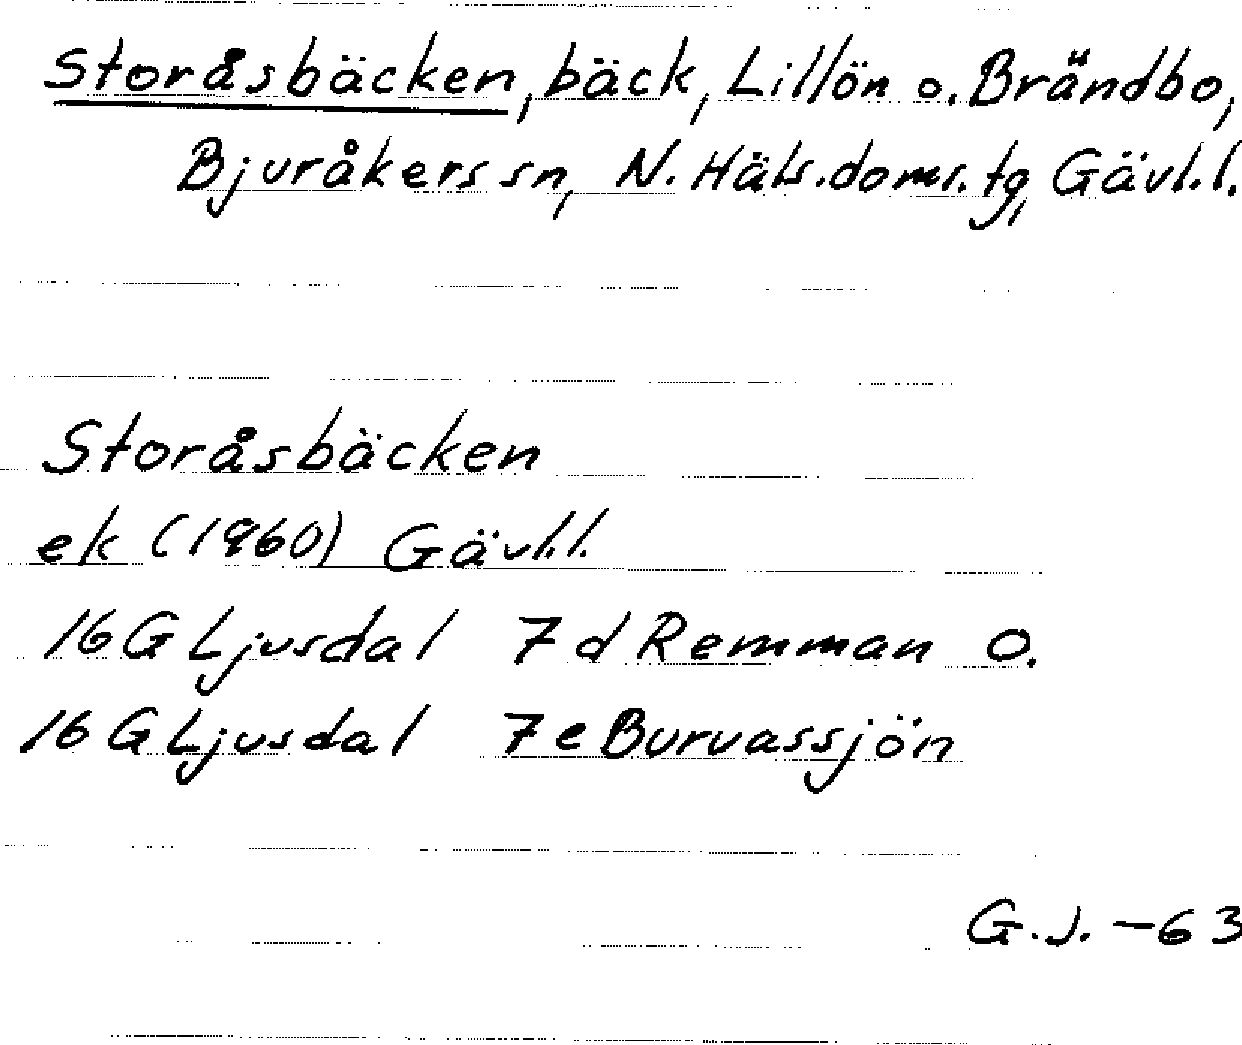 Storåsbäcken, bäck, Lillön o. Brändbo,
Bjuråkers sn, N. Häls. doms. tg, Gävl. l.
Storåsbäcken
ek (1960) Gävl. l.
16G Ljusdal 7d Remman O.
16G Ljusdal 7e Burvassjön
G.J. -63